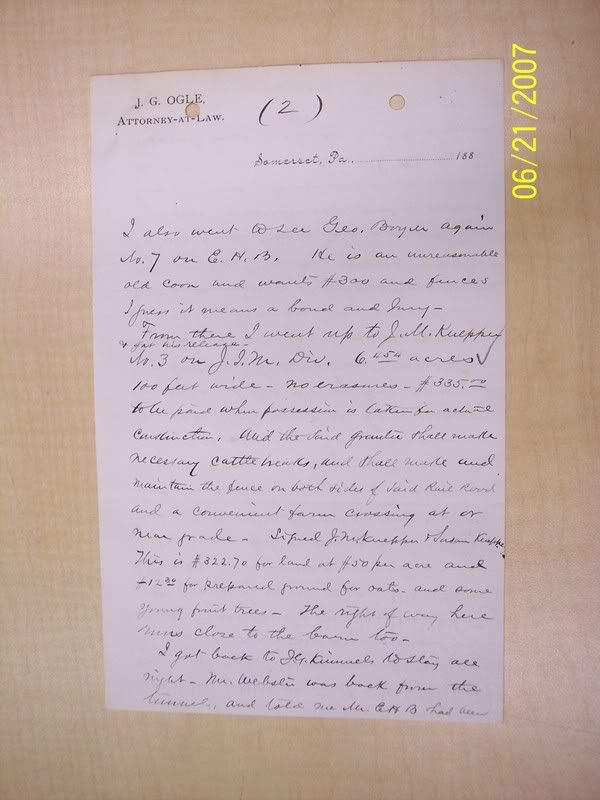 J. G. OGLE,
ATTORNEY-AT-LAW.
(2)
Somerset, Pa., 188
I also went to see Geo. Boyer again
No. 7 on E. H. B. He is an unreasonable
old coon and wants $300 and fences
I guess it means a bond and Jury -
From there I went up to J. M. Knepper
& got his release -
No. 3 on J. I. M. Div. 6.454 acres
100 feet wide - no erasures - $335.00
to be paid when possession is taken for actual
construction. And the said grantee shall make
necessary cattle breaks, and shall make and
maintain the fence on both sides of said Rail Road
and a convenient farm crossing at or
near grade - Signed J. M. Knepper & Susan Knepper.
This is $322.70 for land at $50 per acre and
$12.30 for prepared ground for oats - and some
young fruit trees - The right of way here
runs close to the barn too -
I got back to Kimmels to stay all
night - Mr. Webster was back from the
tunnel, and told me Mr. E H B had been
06/21/2007